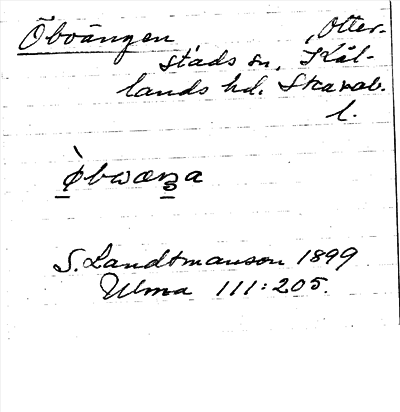 Öbvängen Otter-
stads sn. Kål-
lands hd. Skarab.
l.
S. Landtmanson 1899
Ulma 111:205.